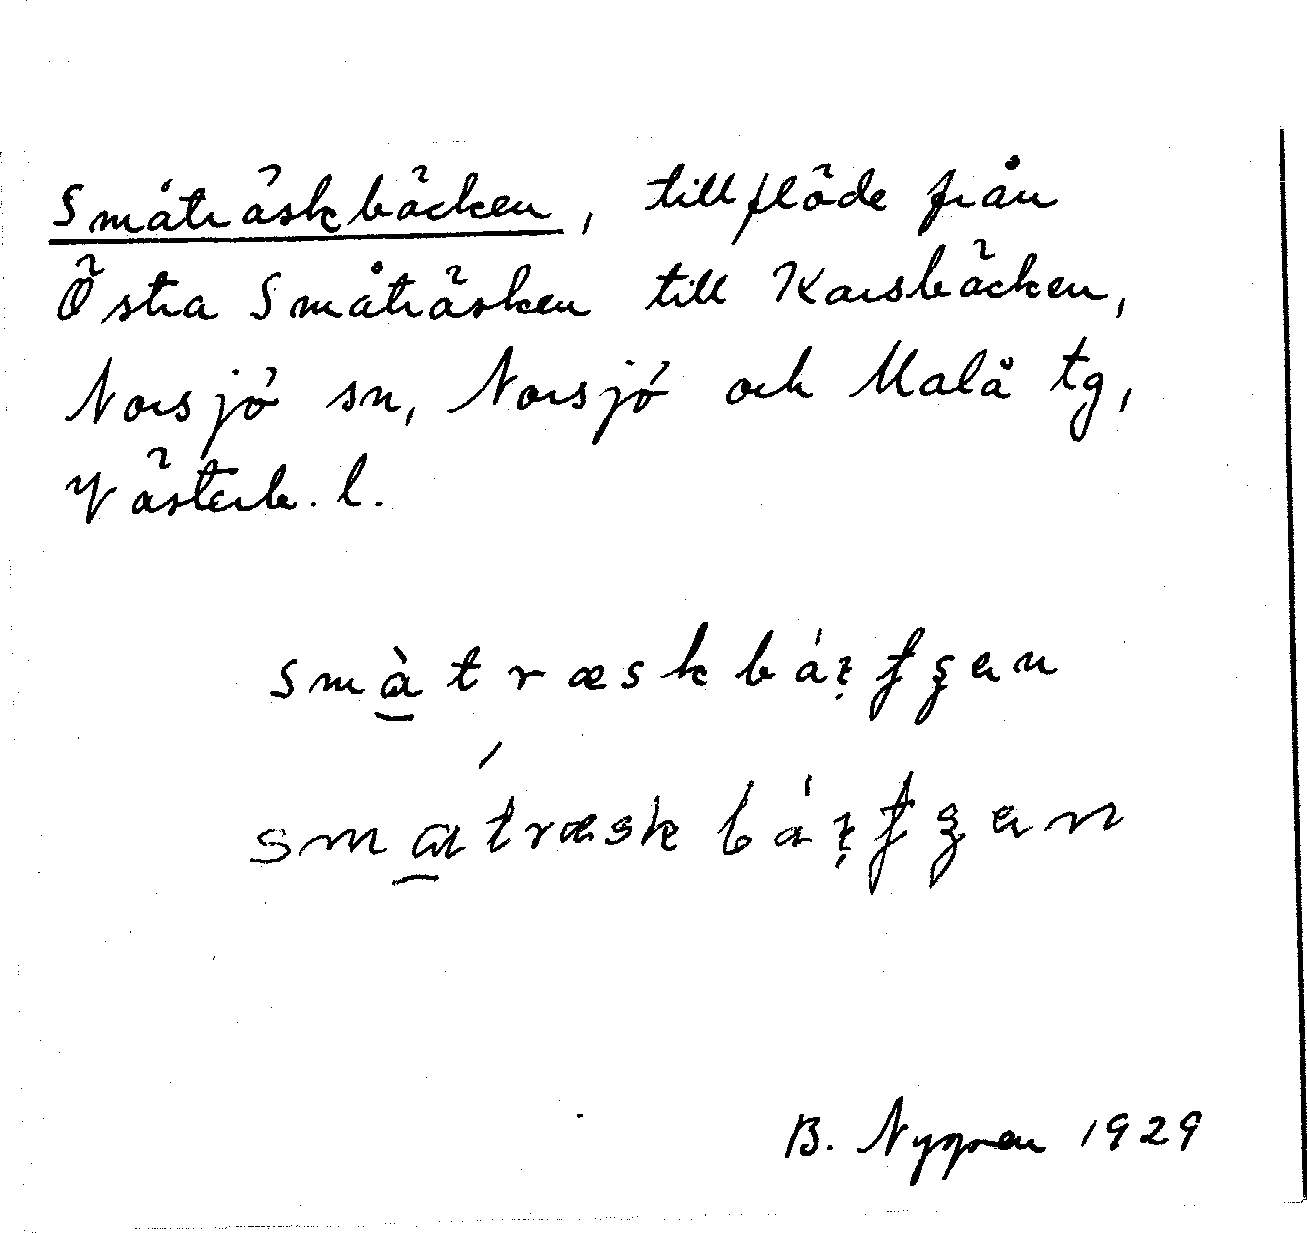 Småträskbäcken, tillflöde från
Östra Småträsken till Karsbäcken,
Norsjö sn, Norsjö och Malå tg,
Västerb. l.
B. Nygren 1929